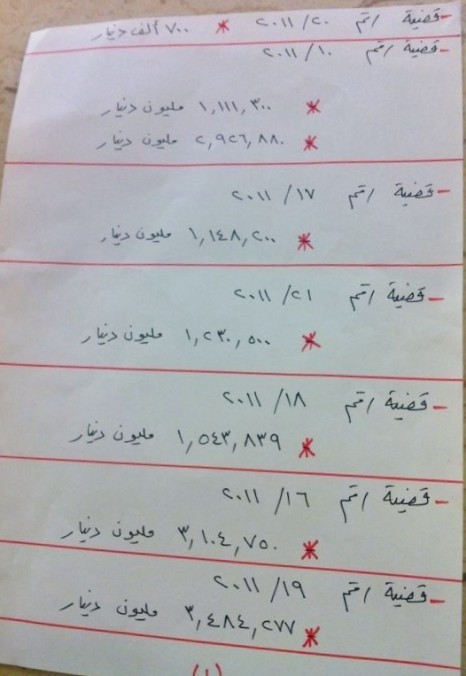 - قضية رقم ٢٠/٢٠١١ * ٧٠٠ ألف دينار
- قضية رقم ١٠/٢٠١١
* ١,١١١,٣٠٠ مليون دينار
* ٢,٩٢٦,٨٨٠ مليون دينار
- قضية رقم ١٧/٢٠١١
* ١,١٤٨,٢٠٠ مليون دينار
- قضية رقم ٢١/٢٠١١
* ١,٢٣٠,٥٠٠ مليون دينار
- قضية رقم ١٨/٢٠١١
* ١,٥٤٣,٨٣٩ مليون دينار
- قضية رقم ١٦/٢٠١١
* ٣,١٠٤,٧٥٠ مليون دينار
- قضية رقم ١٩/٢٠١١
* ٣,٤٨٤,٢٧٧ مليون دينار
(١)